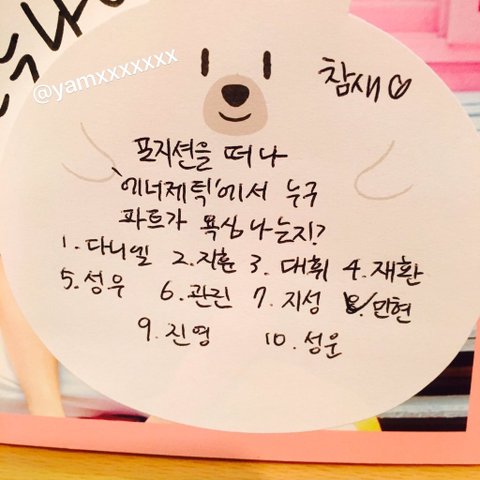 @yamxxxxxxx
참새♡
포지션을 떠나
'에너제틱'에서 누구
파트가 욕심 나는지?
1. 다니엘 2. 지훈 3. 대휘 4. 재환
5. 성우 6. 관린 7. 지성 8. 민현
9. 진영 10. 성운